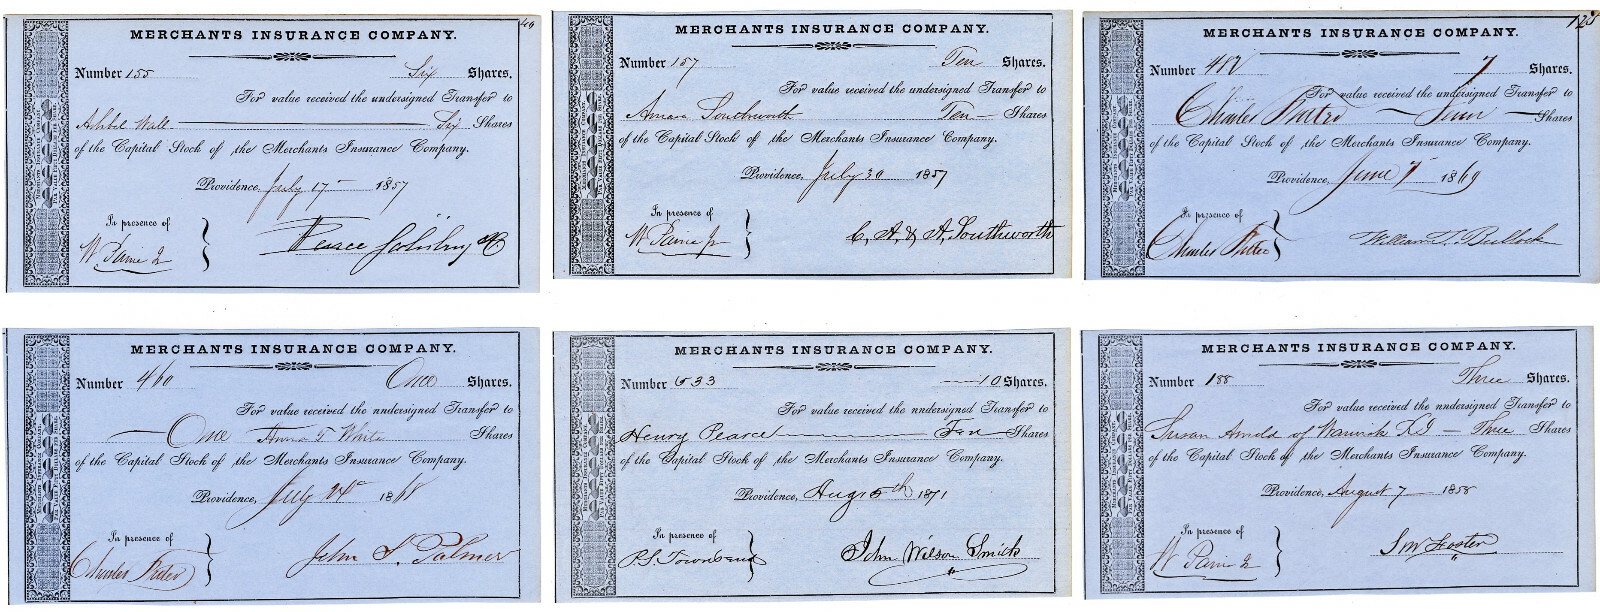 49
MERCHANTS INSURANCE COMPANY.
Number 155 Six Shares.
For value received the undersigned Transfer to
Ashbel Wall Six Shares
of the Capital Stock of the Merchants Insurance Company.
Providence, July 17 1857
In presence of
W. Paine Jr
Pearce Salisbury & Co
MERCHANTS INSURANCE COMPANY.
Number 157 Ten Shares.
For value received the undersigned Transfer to
Amasa Southworth Ten Shares
of the Capital Stock of the Merchants Insurance Company.
Providence, July 30 1857
In presence of
W. Paine Jr
C. A. & A. Southworth
128
MERCHANTS INSURANCE COMPANY.
Number 7 Shares.
For value received the undersigned Transfer to
Charles Shares
of the Capital Stock of the Merchants Insurance Company.
Providence, June 7 1869
In presence of
Charles
William T. Bullock
MERCHANTS INSURANCE COMPANY.
Number 460 One Shares.
For value received the nndersigned Transfer to
One Anna T White Shares
of the Capital Stock of the Merchants Insurance Company.
Providence, July 24 1868
In presence of
Charles
John S. Palmer
MERCHANTS INSURANCE COMPANY.
Number 533 10 Shares.
For value received the nndersigned Transfer to
Henry Pearce Ten Shares
of the Capital Stock of the Merchants Insurance Company.
Providence, Augt 5th 1871
In presence of
P.S. Townsend
John Wilson Smith
MERCHANTS INSURANCE COMPANY.
Number 188 Three Shares.
For value received the nndersigned Transfer to
Susan Arnold of Warwick R I Three Shares
of the Capital Stock of the Merchants Insurance Company.
Providence, August 7 1858
In presence of
W. Paine Jr
S W Foster